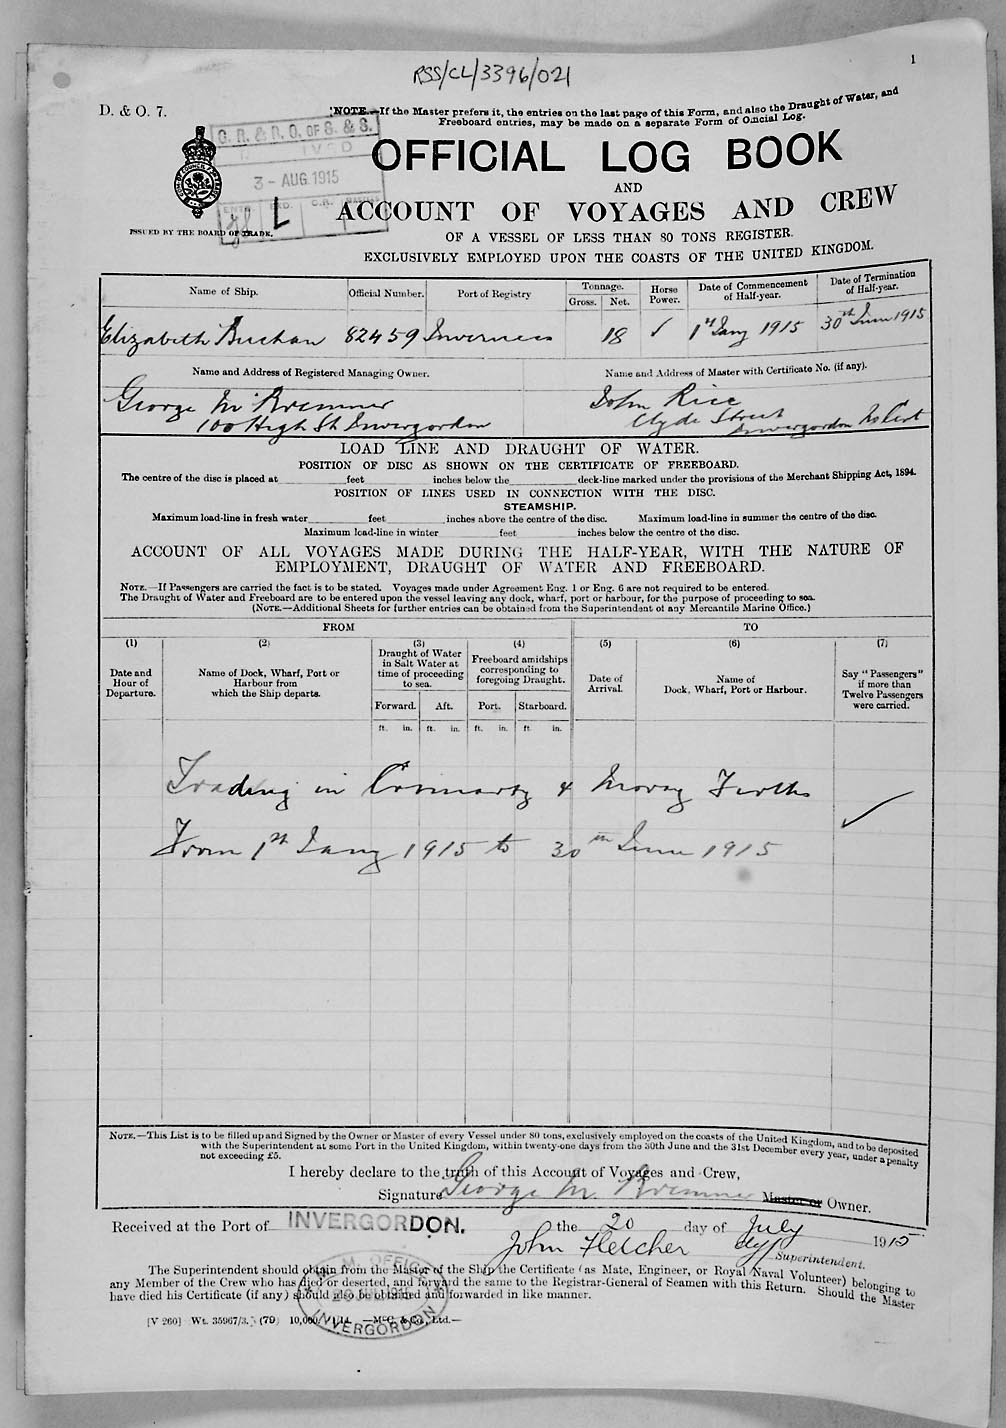 RSS/CL/3396/021
1
D. & O. 7.
NOTE.—If the Master prefers it, the entries on the last page of this Form, and also the Draught of Water, and
Freeboard entries, may be made on a separate Form of Official Log.
C. R. & R. O. OF S. & S.
3 - AUG. 1915
L
OFFICIAL LOG BOOK
AND
ACCOUNT OF VOYAGES AND CREW
ISSUED BY THE BOARD OF TRADE.
OF A VESSEL OF LESS THAN 80 TONS REGISTER.
EXCLUSIVELY EMPLOYED UPON THE COASTS OF THE UNITED KINGDOM.
Name of Ship. Official Number. Port of Registry Tonnage. Gross. Net. Horse Power. Date of Commencement of Half-year. Date of Termination of Half-year.
Elizabeth Buchan 82459 Inverness 18 ✓ 1st Jany 1915 30th June 1915
Name and Address of Registered Managing Owner. Name and Address of Master with Certificate No. (if any).
George M. Bremner John Rice
100 High St Invergordon Clyde Street Invergordon No Cert
LOAD LINE AND DRAUGHT OF WATER.
POSITION OF DISC AS SHOWN ON THE CERTIFICATE OF FREEBOARD.
The centre of the disc is placed at feet inches below the deck-line marked under the provisions of the Merchant Shipping Act, 1894.
POSITION OF LINES USED IN CONNECTION WITH THE DISC.
STEAMSHIP.
Maximum load-line in fresh water feet inches above the centre of the disc. Maximum load-line in summer the centre of the disc.
Maximum load-line in winter feet inches below the centre of the disc.
ACCOUNT OF ALL VOYAGES MADE DURING THE HALF-YEAR, WITH THE NATURE OF
EMPLOYMENT, DRAUGHT OF WATER AND FREEBOARD.
NOTE.—If Passengers are carried the fact is to be stated. Voyages made under Agreement Eng. 1 or Eng. 6 are not required to be entered.
The Draught of Water and Freeboard are to be entered upon the vessel leaving any dock, wharf, port or harbour, for the purpose of proceeding to sea.
(NOTE.—Additional Sheets for further entries can be obtained from the Superintendent of any Mercantile Marine Office.)
FROM TO
(1) (2) (3) (4) (5) (6) (7)
Date and Hour of Departure.
Name of Dock, Wharf, Port or Harbour from which the Ship departs.
Draught of Water in Salt Water at time of proceeding to sea.
Freeboard amidships corresponding to foregoing Draught.
Date of Arrival.
Name of Dock, Wharf, Port or Harbour.
Say "Passengers" if more than Twelve Passengers were carried.
Forward. Aft. Port. Starboard.
ft. in. ft. in. ft. in. ft. in.
Trading in Cromarty & Moray Firths
✓
From 1st Jany 1915 to 30th June 1915
NOTE.—This List is to be filled up and Signed by the Owner or Master of every Vessel under 80 tons, exclusively employed on the coasts of the United Kingdom, and to be deposited
with the Superintendent at some Port in the United Kingdom, within twenty-one days from the 30th June and the 31st December every year, under a penalty
not exceeding £5.
I hereby declare to the truth of this Account of Voyages and Crew,
Signature George M. Bremner Master or Owner.
Received at the Port of INVERGORDON. the 20 day of July 1915
John Fletcher dy/ Superintendent.
The Superintendent should obtain from the Master of the Ship the Certificate (as Mate, Engineer, or Royal Naval Volunteer) belonging to
any Member of the Crew who has died or deserted, and forward the same to the Registrar-General of Seamen with this Return. Should the Master
have died his Certificate (if any) should also be obtained and forwarded in like manner.
M. M. OFFICE
20 JUL 1915
INVERGORDON
[V 260] Wt. 35967/3. (79) 10,000 —McC. & Co., Ltd.—